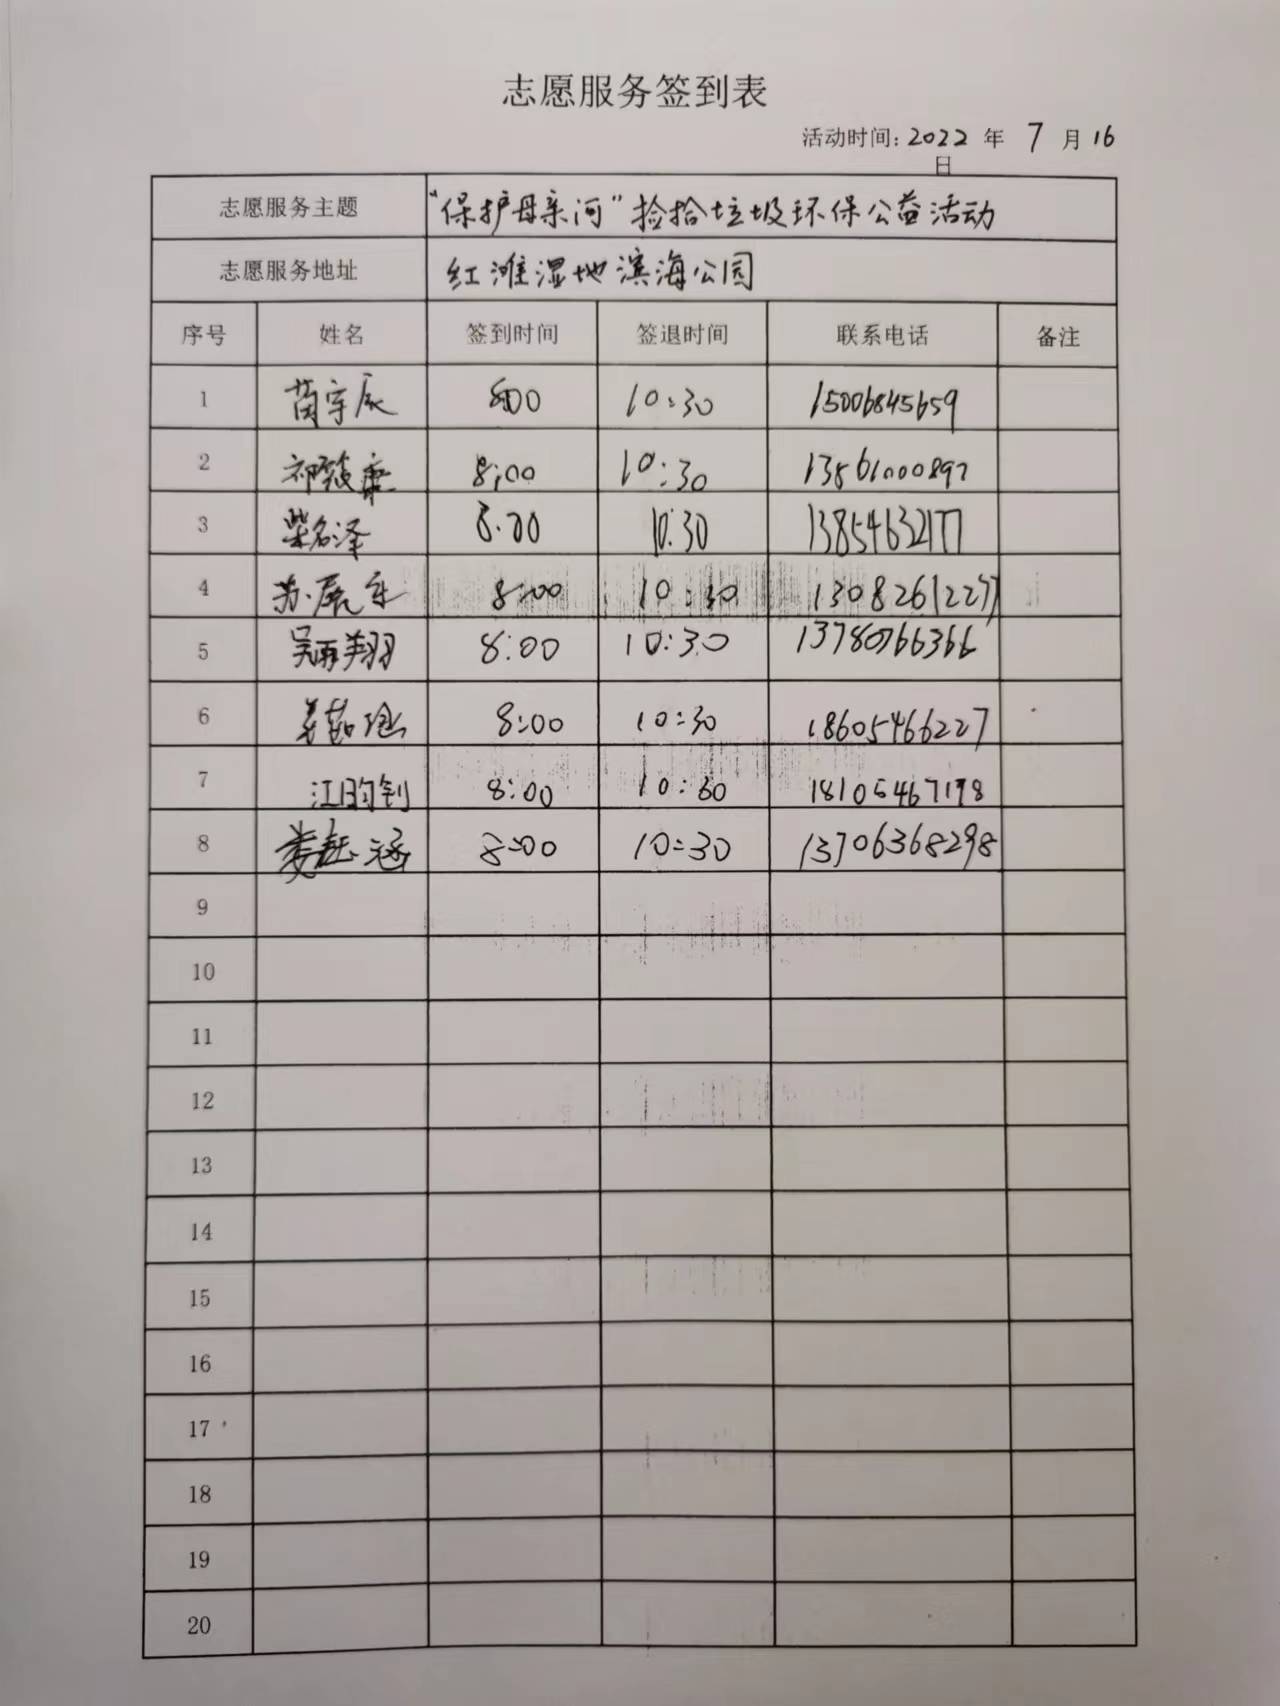 志愿服务签到表
活动时间: 2022 年 7 月 16
日
志愿服务主题 "保护母亲河"捡拾垃圾环保公益活动
志愿服务地址 红滩湿地滨海公园
序号 姓名 签到时间 签退时间 联系电话 备注
1 苗宇辰 8:00 10:30 15006845659
2 8:00 10:30 13561000897
3 柴名泽 8:00 10:30 13854632177
4 8:00 10:30 13082612277
5 吴雨翔 8:00 10:30 13780766366
6 8:00 10:30 18605466227
7 江昀钊 8:00 10:30 18105467198
8 娄钰涵 8:00 10:30 13706368298
9
10
11
12
13
14
15
16
17
18
19
20